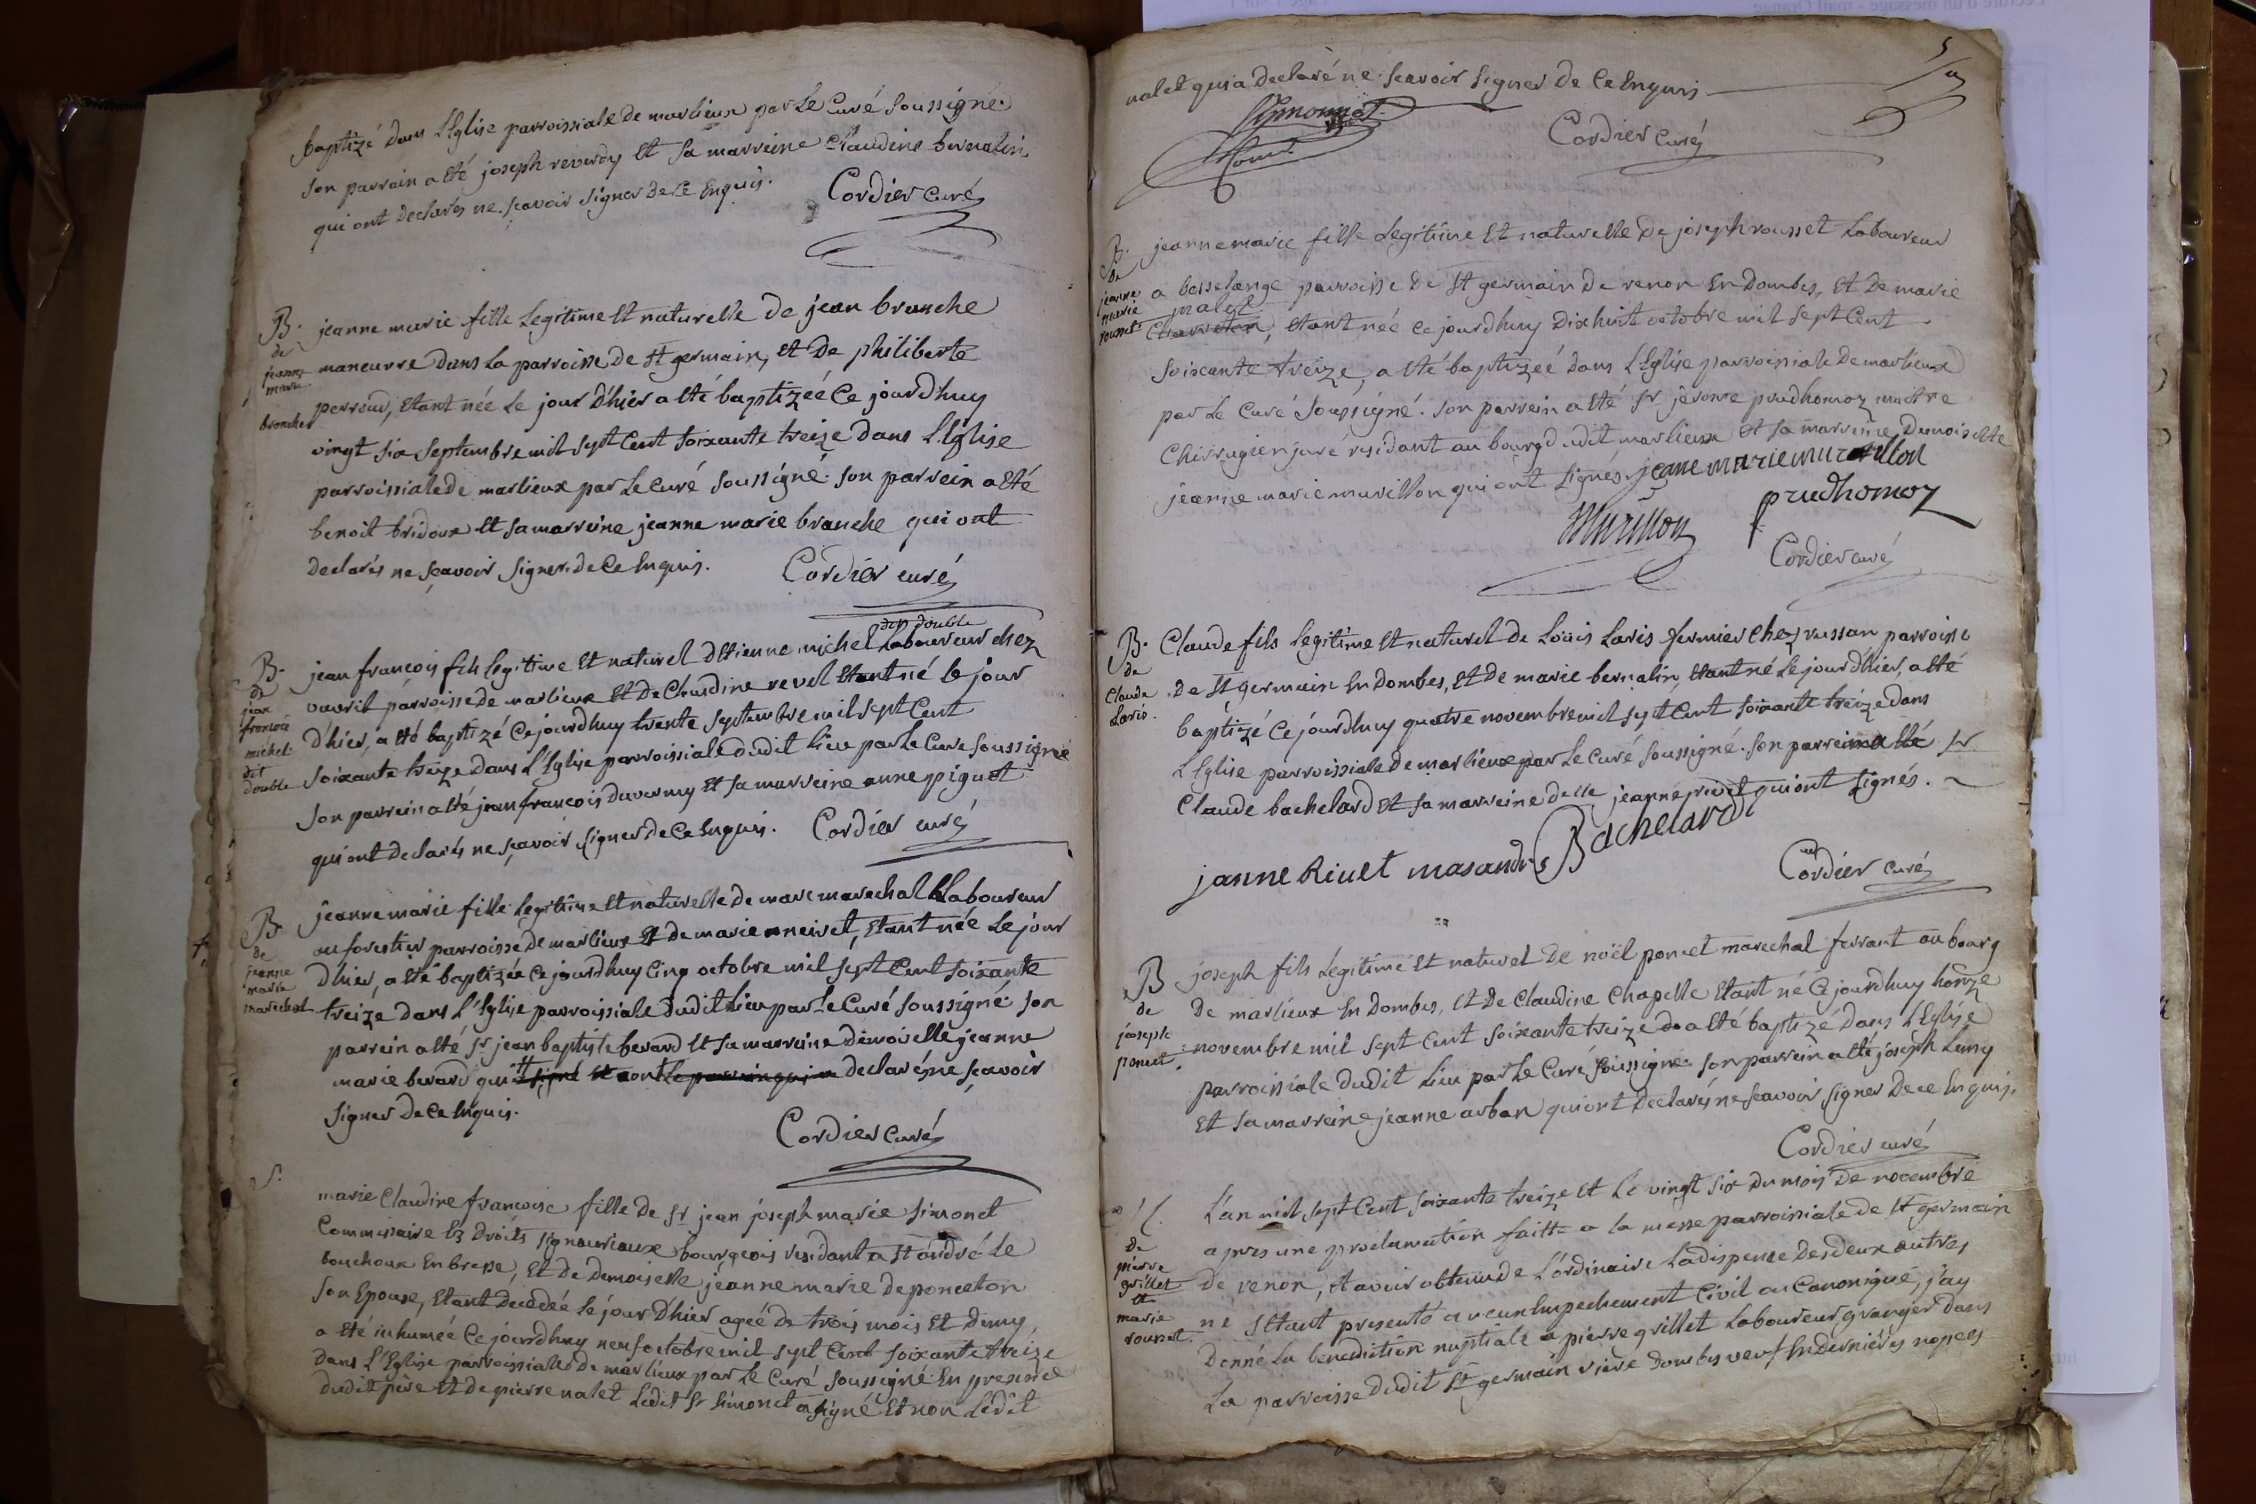 baptizé dans L'Eglise parroissiale de marlieux par Le Curé Soussigné.
Son parrain a Eté joseph reverdy Et Sa marreine Claudine bernalin
qui ont declarés ne Scavoir Signer de Ce Enquis.
Cordier Curé
B.
de
jeanne
marie
branche
jeanne marie fille Legitime Et naturelle de jean branche
maneuvre dans La parroisse de St germain, Et De philiberte
perroud, Etant née Le jour D'hier a Eté baptizeé Ce jourd'huy
vingt Six Septembre mil Sept Cent Soixante treize dans L'Eglise
parroissiale de marlieux par Le Curé Soussigné. Son parrein a Eté
benoit bridoux Et Sa marreine jeanne marie branche qui ont
Declarés ne Sçavoir Signer de Ce Enquis.
Cordier curé
B.
de
jean
francois
michel
dit
double
dit double
jean françois fils Legitime Et naturel d'Etienne michel Laboureur chez
vavril parroisse de marlieux Et De Claudine revel Etant né Le jour
D'hier, a Eté baptizé Ce jourdhuy trente Septembre mil Sept Cent
Soixante treize dans L'Eglise parroissiale dudit Lieu par Le Curé Soussigné
Son parrein a Eté jean françois duvermy Et Sa marreine anne piquet
qui ont declarés ne Sçavoir Signer de Ce Enquis.
Cordier curé
B
de
jeanne
marie
marechal
jeanne marie fille Legitime Et naturelle de marc marechal Laboureur
au forestier parroisse De marlieux Et de marie neivet, Etant née Le jour
D'hier, a Eté baptizée Ce jourdhuy Cinq octobre mil Sept Cent Soixante
treize dans L'Eglise parroissiale dudit Lieu par Le Curé Soussigné Son
parrein a Eté Sr jean baptiste berard Et Sa marreine demoiselle jeanne
marie berard qui ont declaré ne Sçavoir
Signer de Ce Enquis.
Cordier Curé
S.
marie Claudine francoise fille de Sr jean joseph marie Simonet
Commissaire Es Droits Signeuriaux bourgeois residant a St andré Le
bouchoux En bresse, Et De Demoiselle jeanne marie de ponceton
Son Epouse, Etant Decedeé Le jour D'hier ageé de trois mois Et Demy
a Eté inhumeé Ce jourdhuy neuf octobre mil Sept Cent Soixante treize
dans L'Eglise parroissiale De marlieux par Le Curé Soussigné En presence
dudit père Et de pierre nalet Ledit Sr Simonet a Signé Et non Ledit
5
nalet qui a Declaré ne Scavoir Signer de Ce Enquis
Simonnet
Cordier Curé
B.
de
jeanne
marie
rousset
jeanne marie fille Legitime Et naturelle De joseph rousset Laboureur
a besselange parroisse de St germain de renon En Dombes, Et De marie
nalet
Charreton, Etant née Ce jourdhuy Dixhuit octobre mil Sept Cent
Soixante treize, a Eté baptizeé dans L'Eglise parroissiale De marlieux
par Le Curé Soussigné. Son parrein a Eté Sr jerome prudhomoz maitre
Chirrugien juré residant au bourg dudit marlieux Et Sa marreine Demoiselle
jeanne marie murillon qui ont Signés. jeane marie murillon
Murillon
prudhomoz
Cordier curé
B.
de
Claude
Laris.
Claude fils Legitime Et naturel de Loüis Laris fermier chez russan parroisse
De St germain En Dombes, Et De marie bernalin, Etant né Le jour d'hier, a Eté
baptizé Ce jourdhuy quatre novembre mil Sept Cent Soixante treize dans
L'Eglise parroissiale De marlieux par Le Curé Soussigné. Son parrein a Eté Sr
Claude bachelard Et Sa marreine delle jeanne rivet qui ont Signés.
janne Rivet
Bachelard
Cordier curé
B
de
joseph
poncet.
joseph fils Legitime Et naturel De noël poncet marechal ferrant au bourg
De marlieux En Dombes, Et De Claudine Chapelle Etant né Ce jourdhuy honze
novembre mil Sept Cent Soixante treize a Eté baptizé Dans L'Eglise
parroissiale dudit Lieu par Le Curé Soussigné. Son parrein a Eté joseph Leny
Et Sa marreine jeanne arban qui ont Declarés ne Scavoir Signer De ce Enquis.
Cordier curé
De
pierre
grillet
et
marie
rousset
L'an mil Sept Cent Soixante treize Et Le vingt Six Du mois De novembre
apres une proclamation faitte a la messe parroissiale de St germain
De renon, Et avoir obtenu de L'ordinaire La dispense Des deux autres
ne S'Etant presenté aucun Empechement Civil ou Canonique, j'ay
Donné La benediction nuptiale a pierre grillet Laboureur granger Dans
La parroisse dudit St germain viere Dombes veuf En Dernieres nopces